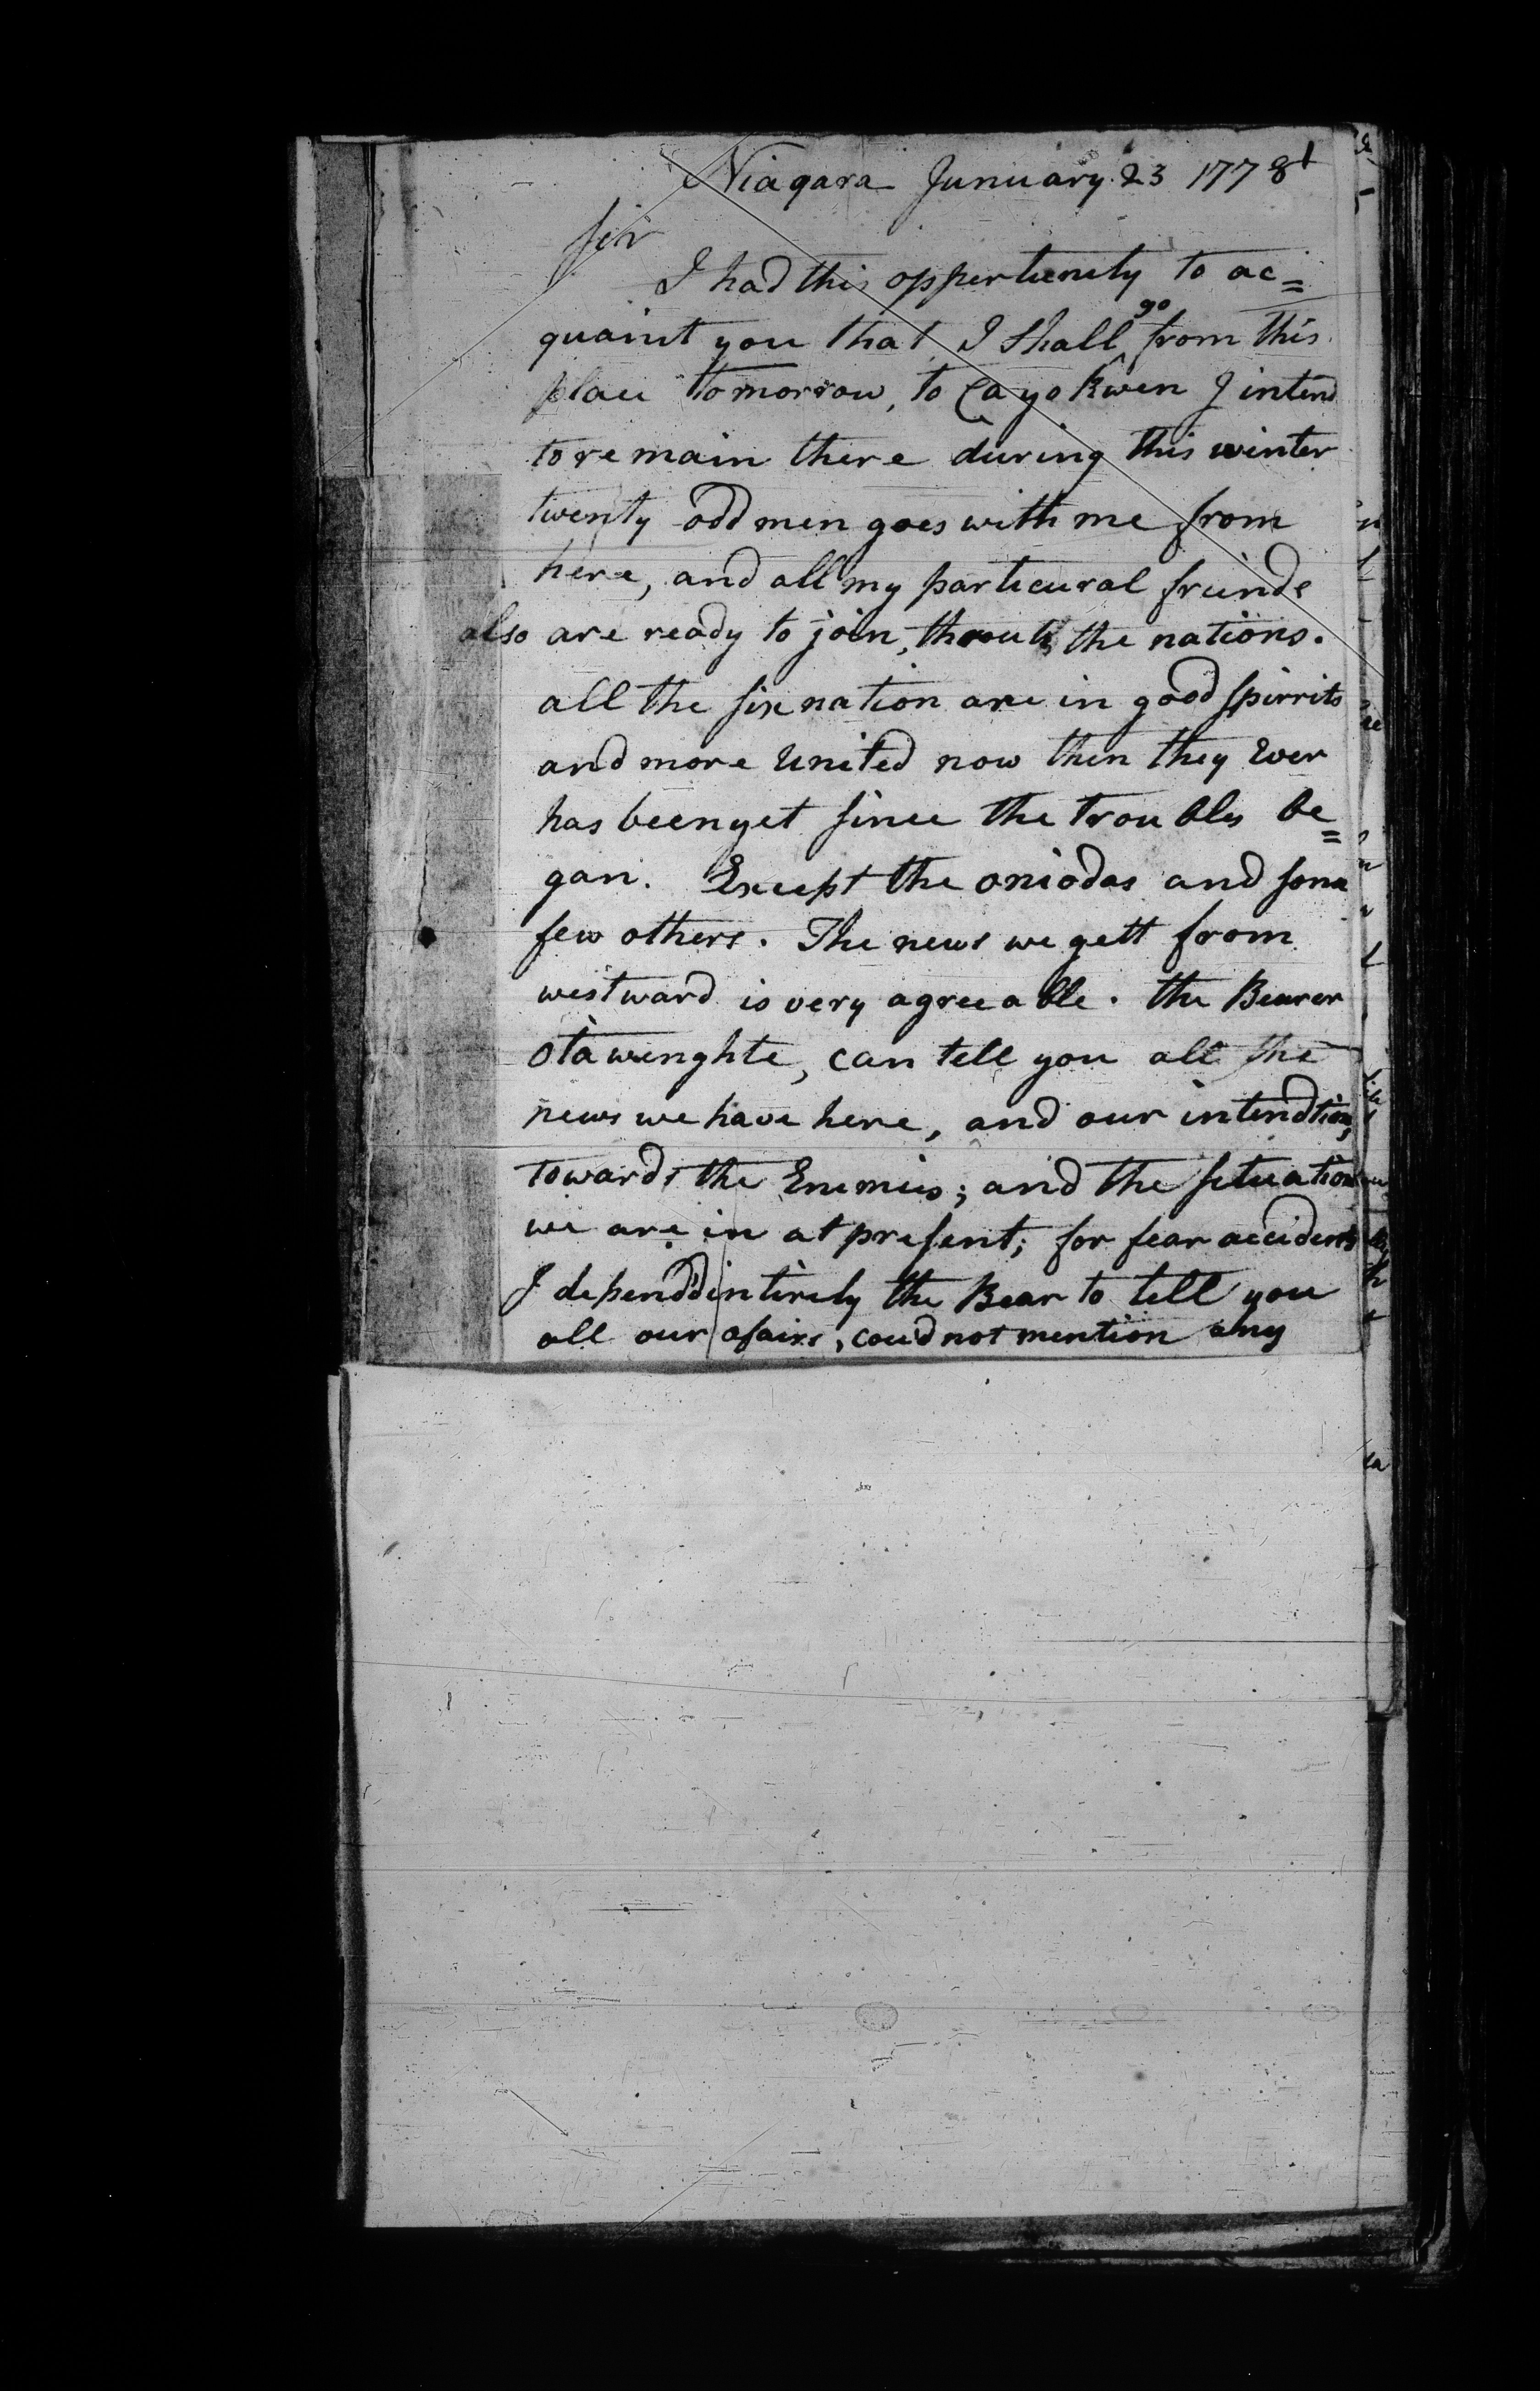 Niagara Junuary. 23 1778
Sir
I had this oppertunity to ac=
quaint you that I Shall go from this
place tomorrow, to Cayokwen I intend
to remain there during this winter
twenty odd men goes with me from
here, and all my particural friends
also are ready to join, throuth the nations.
all the six nation are in good Spirrits
and more United now then they Ever
has been yet since the troubles be=
gan. Except the oniodas and some
few others. The news we gett from
westward is very agreeable. the Bearer
Otawinghte, can tell you all the
news we have here, and our intendtions,
towards the Enemies; and the situation
we are in at present; for fear accidents
I dependd intirely the Bear to tell you
all our afairs, coud not mention any